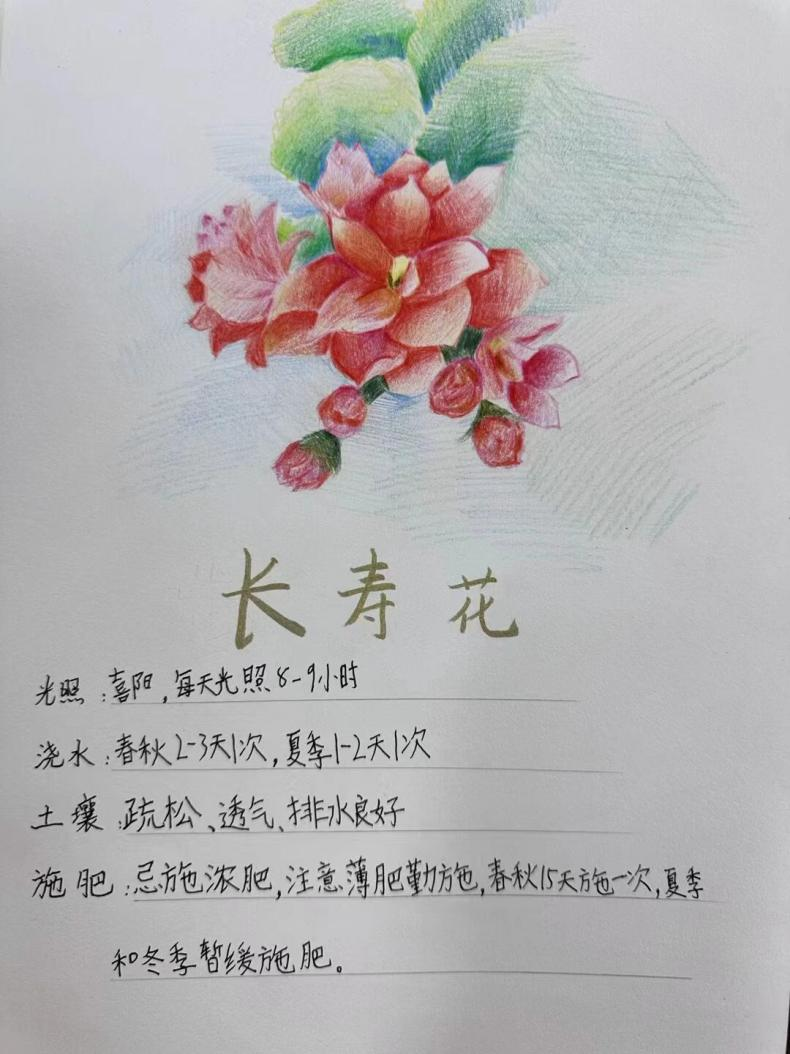 长寿花
光照:喜阳,每天光照8-9小时
浇水:春秋2-3天1次,夏季1-2天1次
土壤:疏松、透气、排水良好
施肥:忌施浓肥,注意薄肥勤施,春秋15天施一次,夏季
和冬季暂缓施肥。